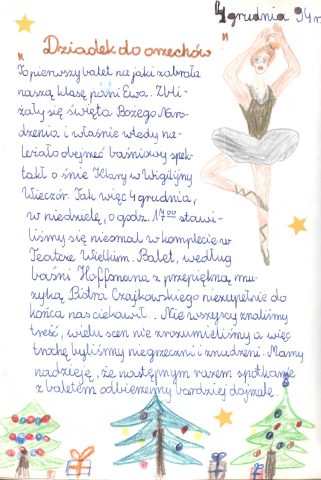 4 grudnia 94 r.
"Dziadek do orzechów"
To pierwszy balet na jaki zabrała
naszą klasę pani Ewa. Zbli-
żały się święta Bożego Naro-
dzenia i właśnie wtedy na-
leżało obejrzeć baśniowy spek-
takl o śnie Klary w Wigilijny
Wieczór. Tak więc 4 grudnia,
w niedzielę, o godz. 17⁰⁰ stawi-
liśmy się nieomal w komplecie w
Teatrze Wielkim. Balet, według
baśni Hoffmana z przepiękną mu-
zyką Piotra Czajkowskiego niezupełnie do
końca nas ciekawił. Nie wszyscy znaliśmy
treść, wielu scen nie zrozumieliśmy a więc
trochę byliśmy niegrzeczni i znudzeni. Mamy
nadzieję, że następnym razem spotkanie
z baletem odbierzemy bardziej dojrzale.